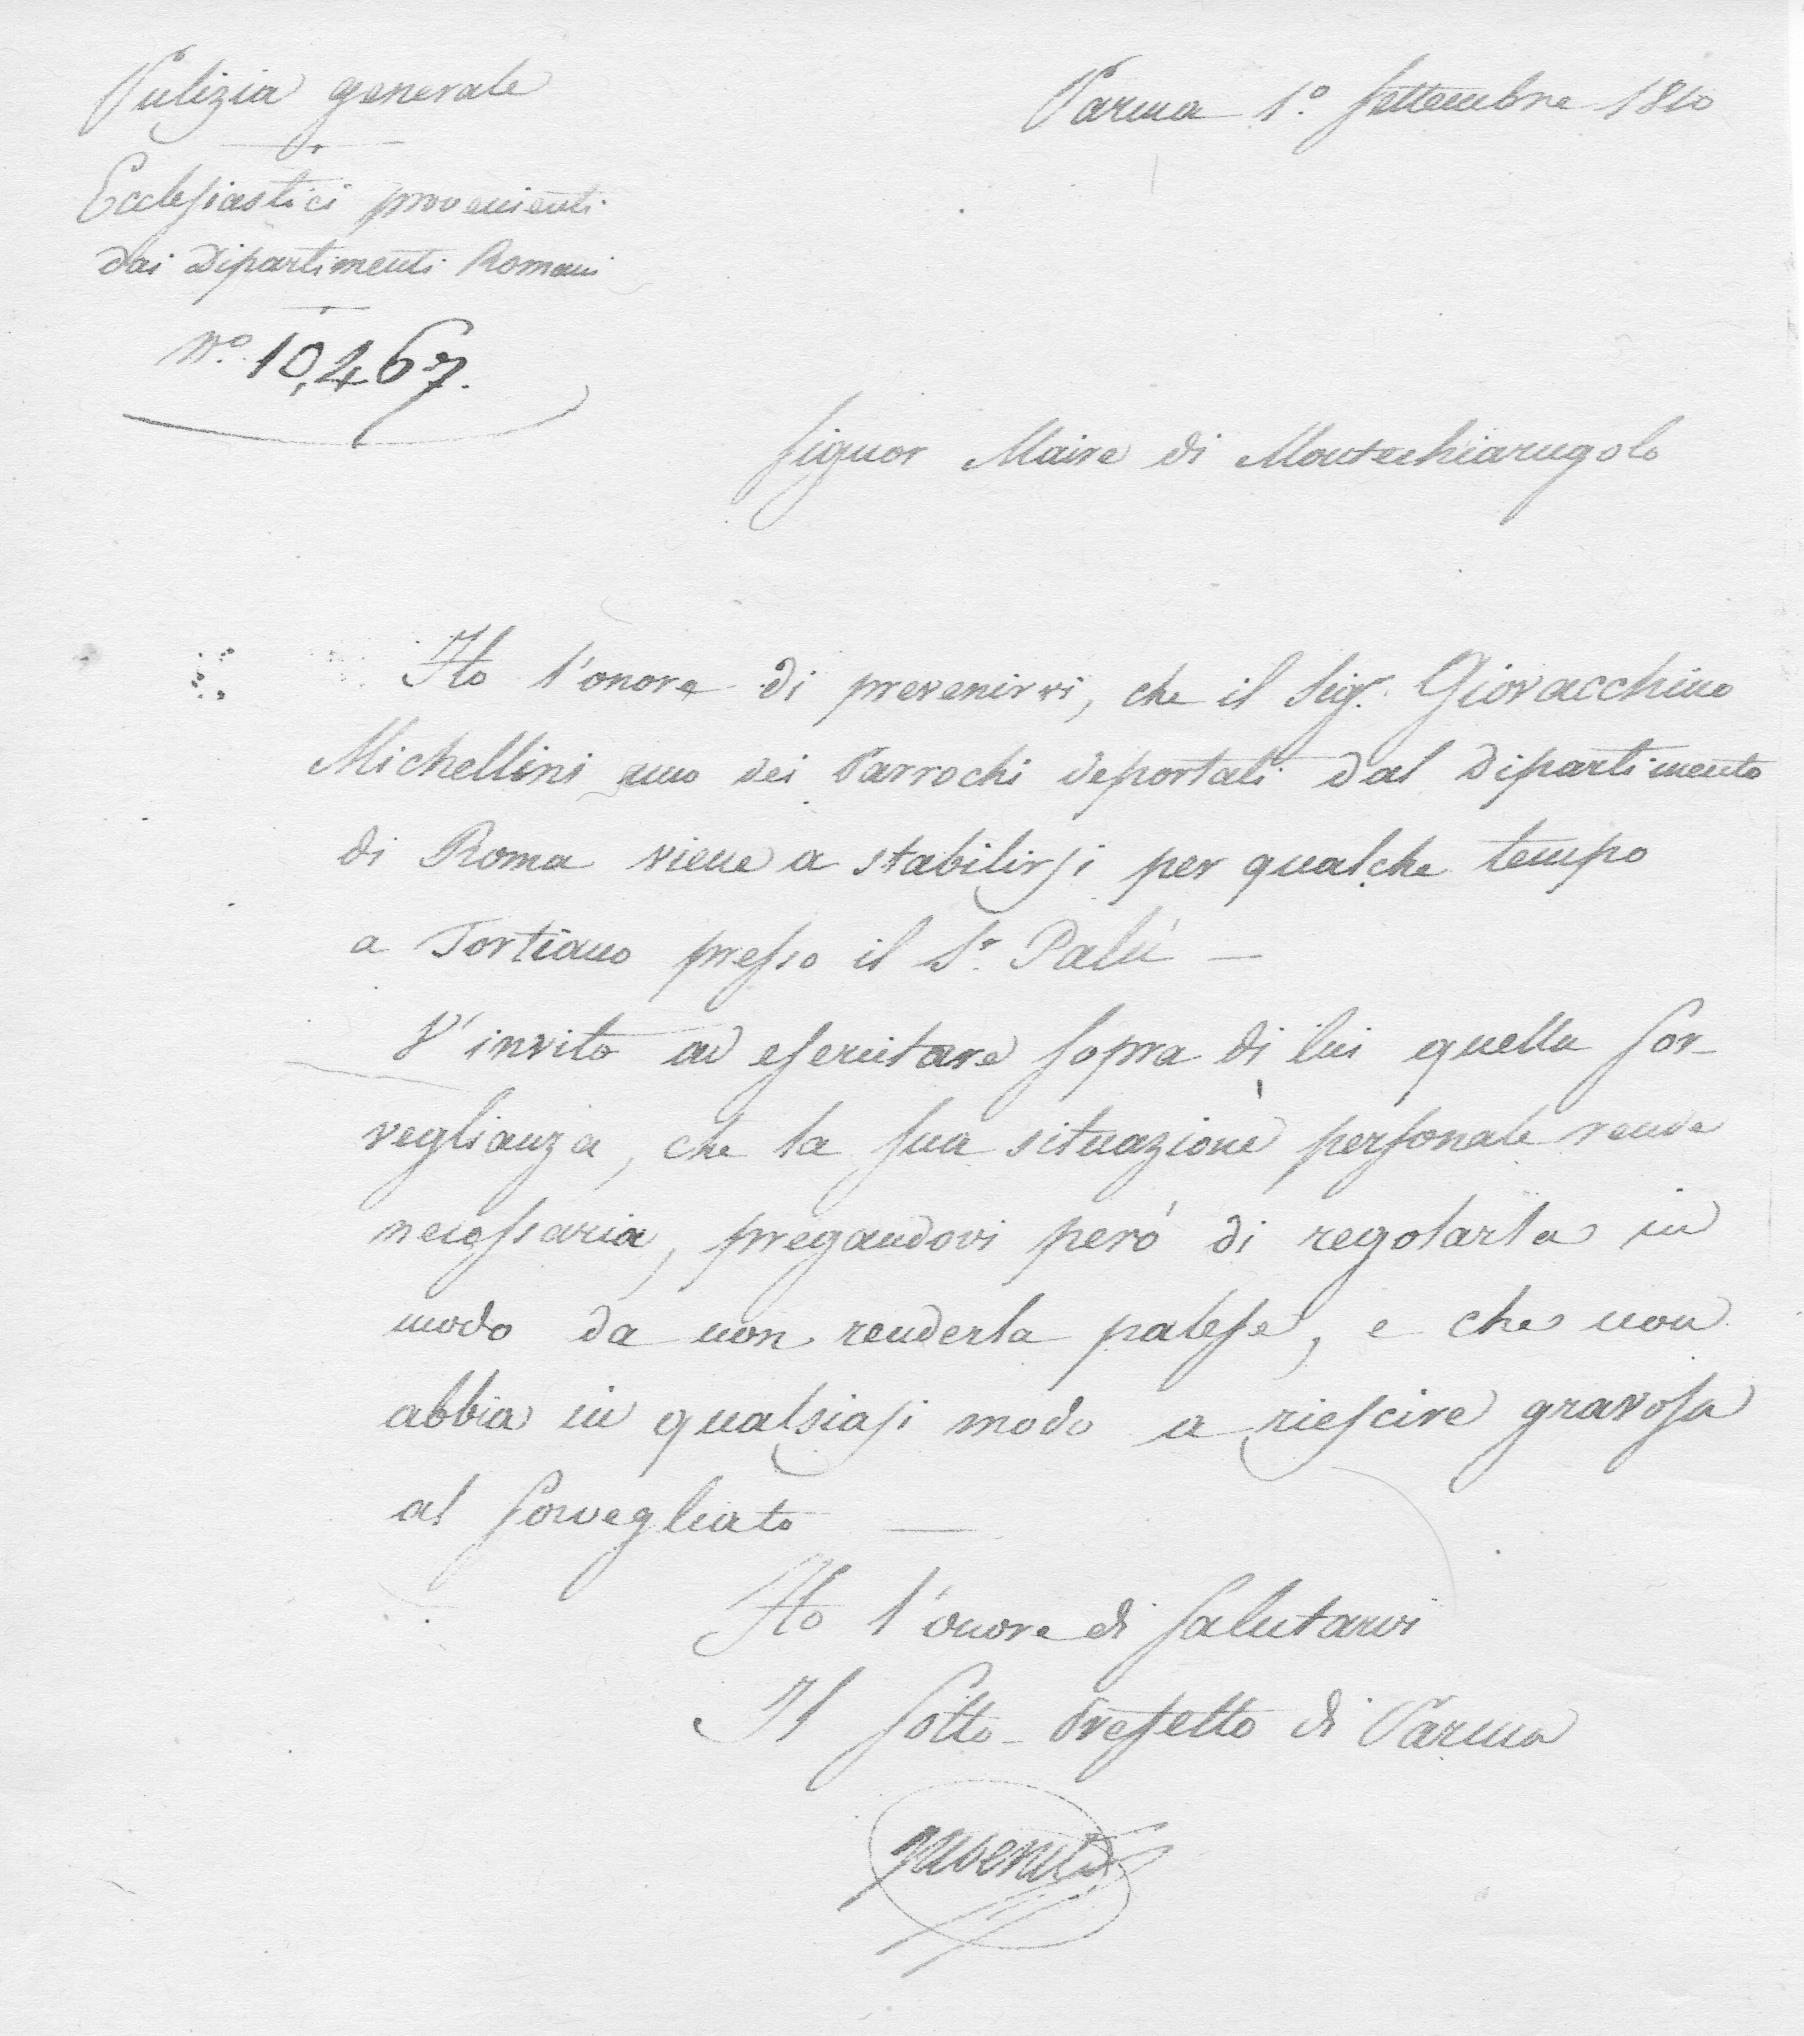 Pulizia generale
Parma 1.º Settembre 1810
Ecclesiastici provenienti
dai Dipartimenti Romani
Nº. 10,467.
Signor Maire di Montechiarugolo
Ho l'onore di prevenirvi, che il Sigr. Giovacchino
Michellini uno dei Parrochi deportati dal Dipartimento
di Roma viene a stabilirsi per qualche tempo
a Tortiano presso il Sr. Palù —
V'invito ad esercitare sopra di lui quella sor-
veglianza, che la sua situazione personale rende
necessaria, pregandovi però di regolarla in
modo da non renderla palese, e che non
abbia in qualsiasi modo a riescire gravosa
al sorvegliato —
Ho l'onore di salutarvi
Il Sotto-Prefetto di Parma